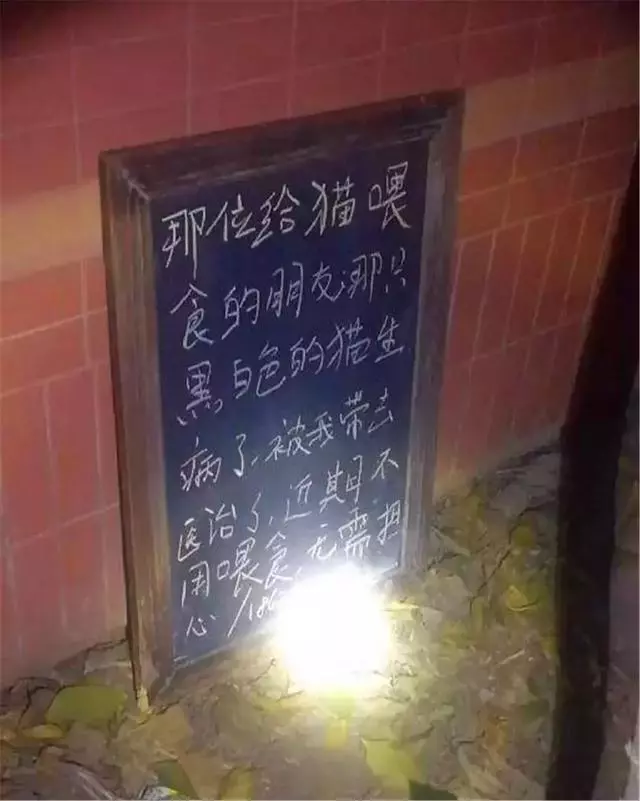 那位给猫喂
食的朋友那只
黑白色的猫生
病了,被我带去
医治了,近期不
用喂食,无需担
心